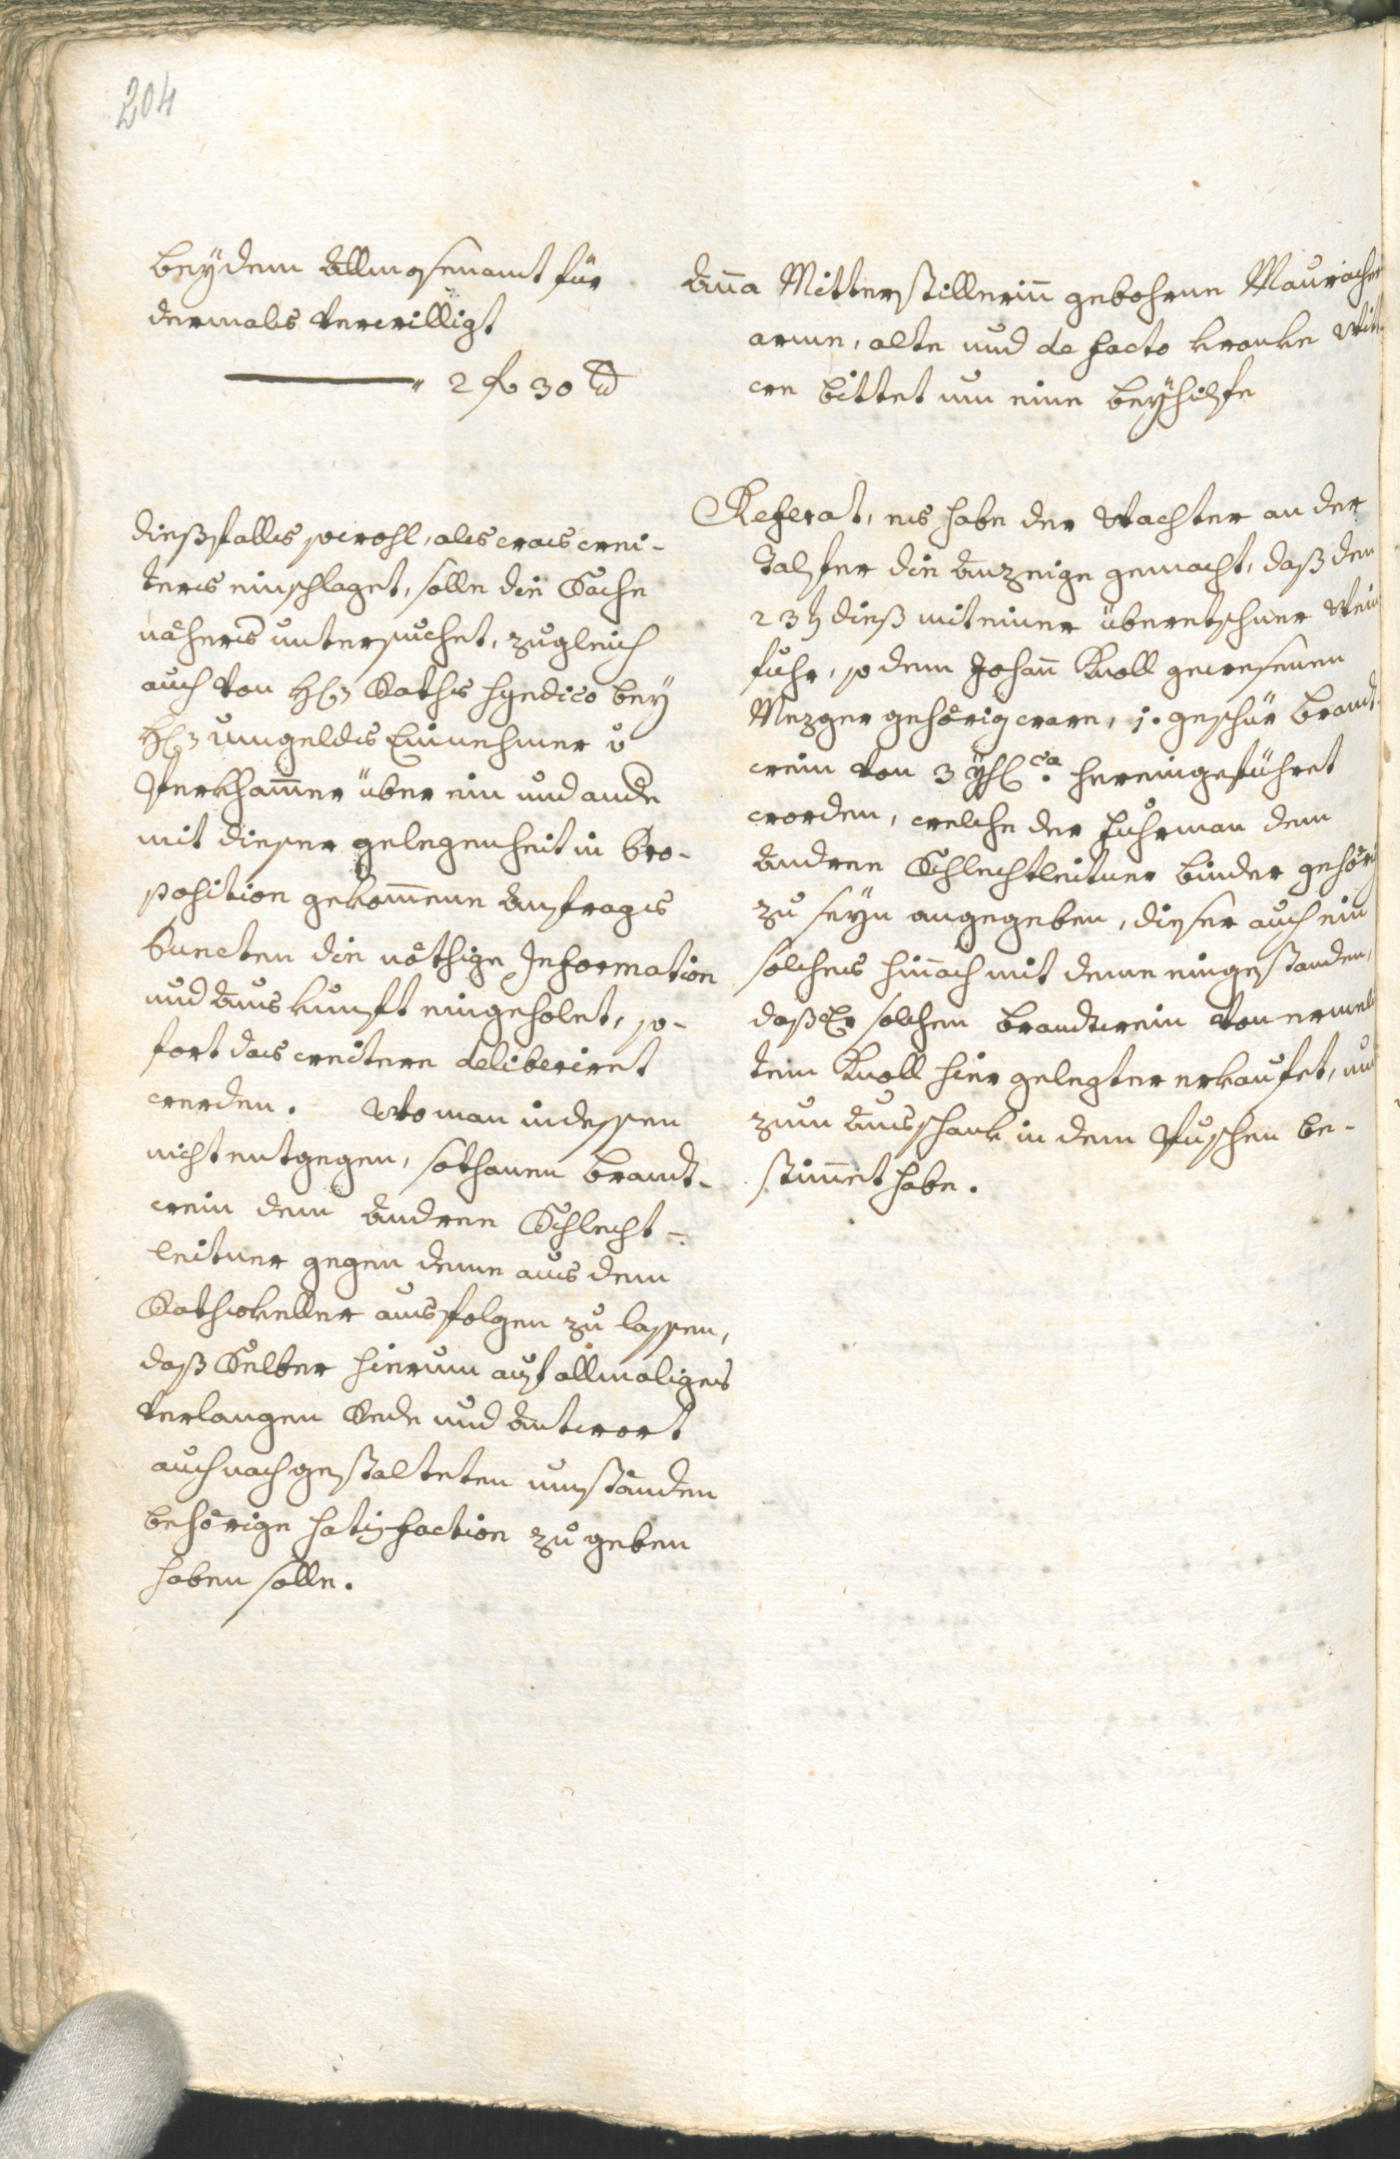 204
beÿdem Allmosenamt für
dermals verwilligt
" 2 f 30 x
dießfalls sowohl, als was wei-
ters einschlaget, solle die Sache
näheres untersuchet, zugleich
auch von H: Raths Syndico beÿ
H: Umgelds Einnehmer v
Ferkhammer über ein und ande
mit dieser gelegenheit in Pro-
position gekommene Anfrags
Puncten die nöthige Information
und Auskunft eingeholet, so-
fort das weitere deliberiret
werden. Wo man indessen
nicht entgegen, sothanen Brandt-
wein dem Andreen Schlecht-
leitner gegen deme aus dem
Rathskeller ausfolgen zu lassen,
daß Selber hierum auf allmaliges
Verlangen Rede und Antwort
auch nach gestalteten umständen
behörige Satisfaction zu geben
haben solle.
Anna Mitterstillerinn gebohrne Mauracher
arme, alte und de facto kranke Witt
we bittet um eine Beÿhilfe
Referat, es habe der Wachter an der
Talfer die Anzeige gemacht, daß den
23t dieß mit einer überetschner Wein
fuhr, so dem Johann Knoll gewesenen
Mezger gehörig ware, 1. geschür Brandt
wein von 3 ÿh: ca. hereingeführet
worden, welche der Fuhrman dem
Andreen Schlechtleitner Binder gehörig
zu seÿn angegeben, dieser auch ein
solches hinnach mit deme eingestanden,
daß Er solchen Brandtwein von ermel
tem Knoll hier gelegter erkaufet, und
zum Ausschank in dem Buschen be-
stimmet habe.